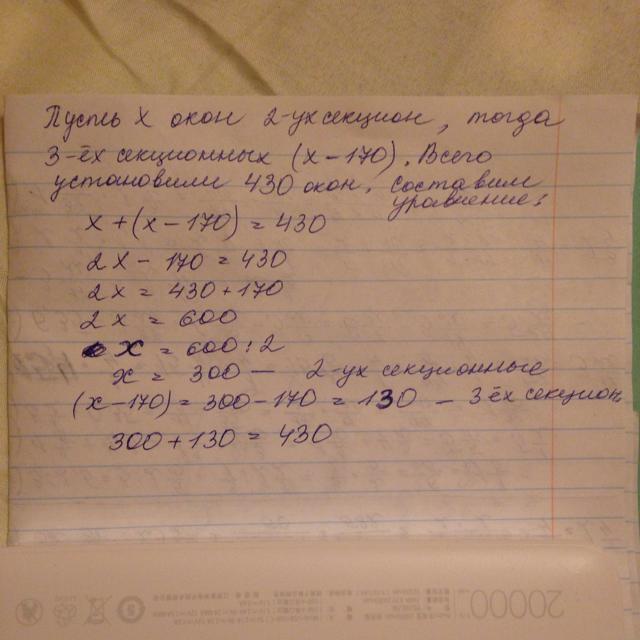 Пусть X окон 2-ух секцион, тогда
3-ёх секционных (x-170). Всего
установили 430 окон. Составим
уравнение:
x+(x-170)=430
2x-170=430
2x=430+170
2x=600
x=600:2
x=300- 2-ух секционные
(x-170)=300-170=130 - 3-ёх секцион
300+130=430
20000